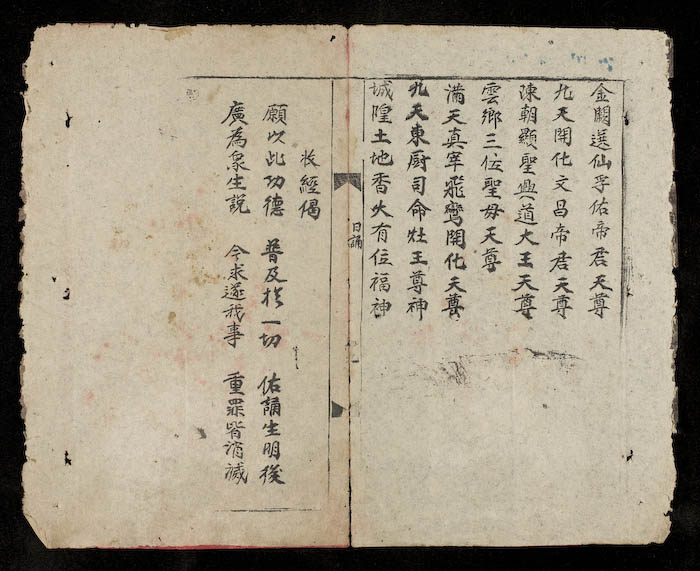 金闕選仙孚佑帝君天尊
九天開化文昌帝君天尊
陳朝顯聖興道大王天尊
雲鄉三位聖母天尊
滿天真宰飛鸞開化天尊
九天東厨司命灶王尊神
城隍土地香火有位福神
日誦
收經偈
願以此功德 普及於一切 佑誦生明後
廣為眾生説 今求遂我事 重罪皆消滅